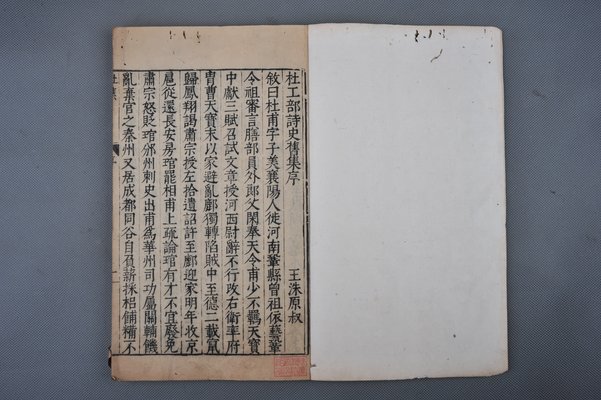 杜工部詩史舊集序 王洙原叔
敘曰杜甫字子美襄陽人徙河南鞏縣曾祖依藝鞏
令祖審言膳部員外郎父閑奉天令甫少不羈天寶
中獻三賦召試文章授河西尉辭不行改右衛率府
胄曹天寶末以家避亂鄜獨轉陷賊中至德二載竄
歸鳳翔謁肅宗授左拾遺詔許至鄜迎家明年收京
扈從還長安房琯罷相甫上疏論琯有才不宜廢免
肅宗怒貶琯邠州刺史出甫爲華州司功屬關輔饑
亂棄官之秦州又居成都同谷自負薪採梠餔糒不